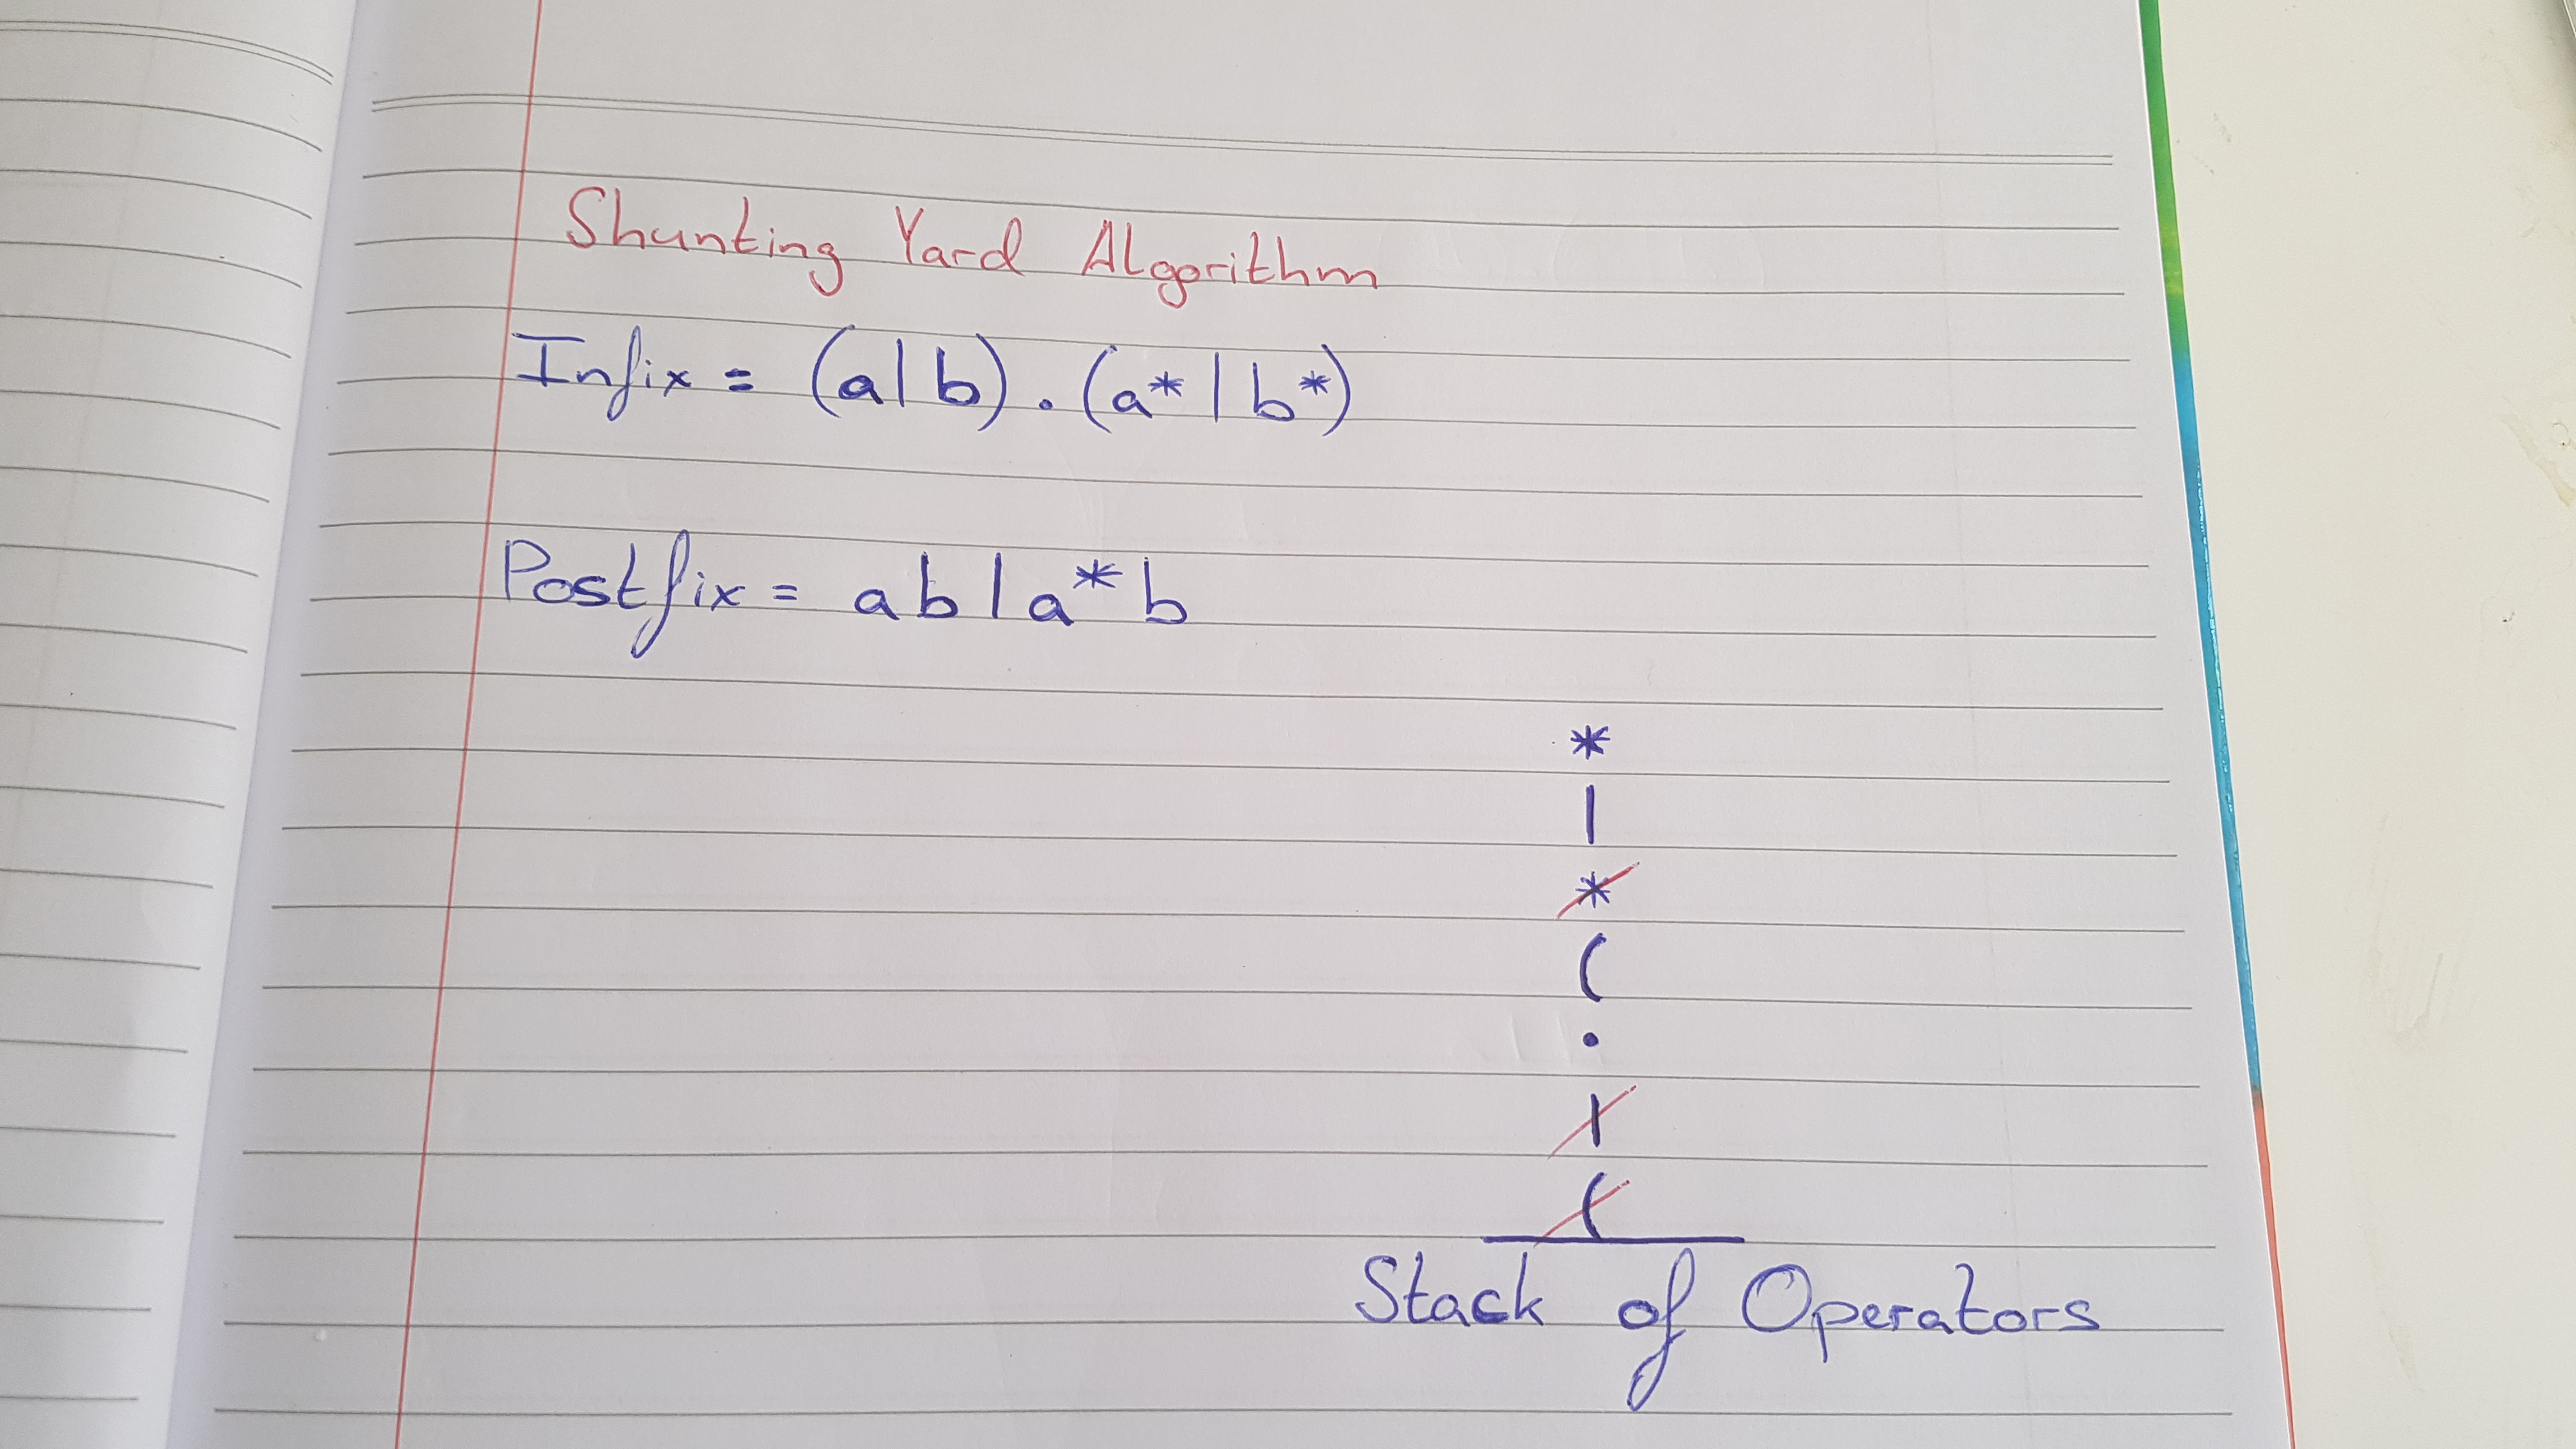 Shunting Yard Algorithm
Infix = (a|b).(a*|b*)
Postfix = ab|a*b
*
|
*
(
.
|
(
Stack of Operators